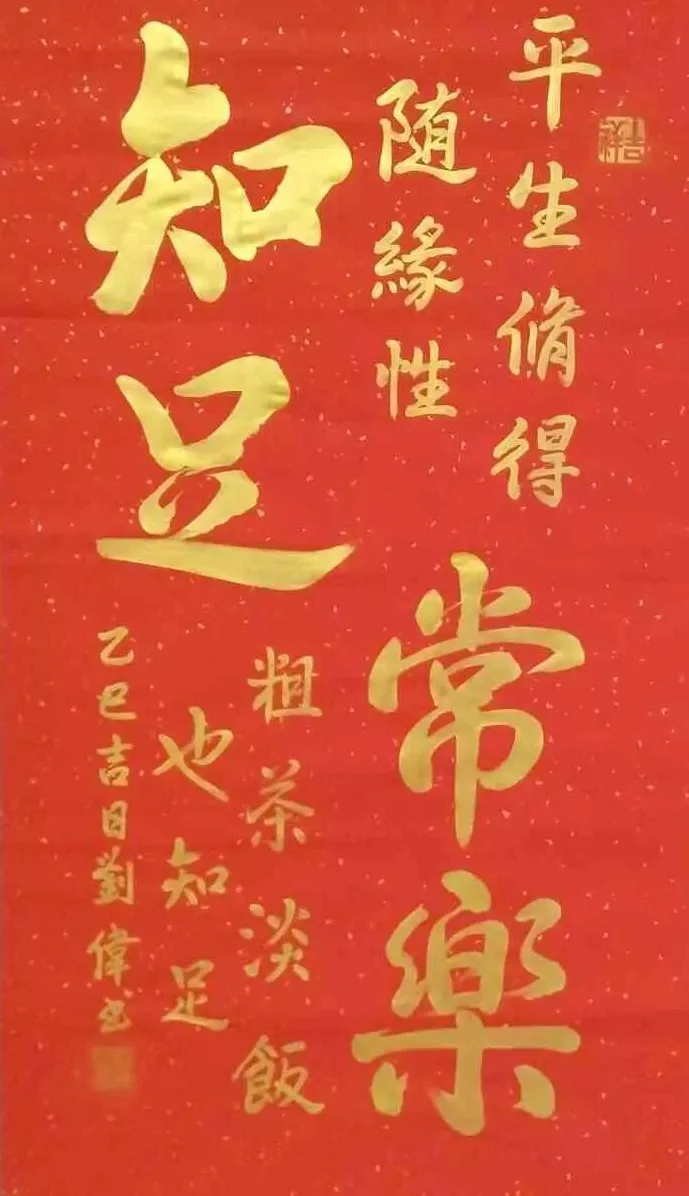 吉祥
平生脩得
随緣性
知足
常樂
粗茶淡飯
也知足
乙巳吉日劉偉书